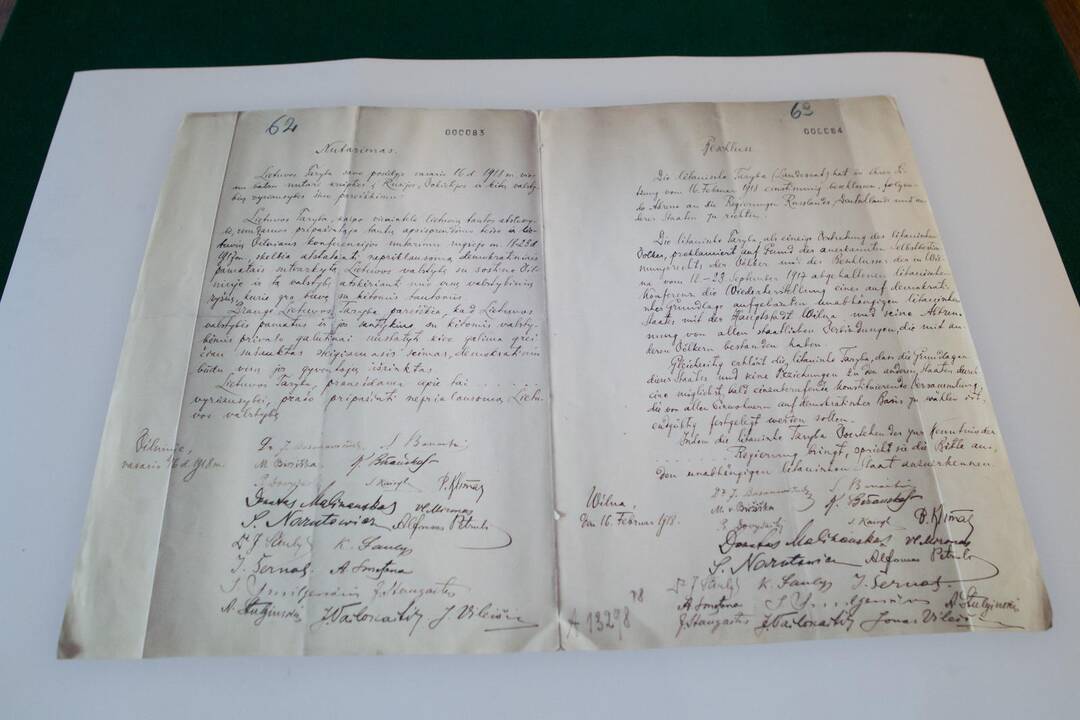 62
000083
Nutarimas.
Lietuvos Taryba savo posėdyje vasario 16 d. 1918 m. vie-
nu balsu nutarė kreiptis į Rusijos, Vokietijos ir kitų valsty-
bių vyriausybes šiuo pareiškimu:
Lietuvos Taryba, kaipo vienintelė lietuvių tautos atstovy-
bė, remdamos pripažintąja tautų apsisprendimo teise ir lie-
tuvių Vilniaus konferencijos nutarimu rugsėjo m. 18-23 d.
1917 m., skelbia atstatanti nepriklausomą demokratiniais
pamatais sutvarkytą Lietuvos valstybę su sostine Vil-
niuje ir tą valstybę atskirianti nuo visų valstybinių
ryšių, kurie yra buvę su kitomis tautomis.
Drauge Lietuvos Taryba pareiškia, kad Lietuvos
valstybės pamatus ir jos santykius su kitomis valsty-
bėmis privalo galutinai nustatyti kiek galima grei-
čiau sušauktas steigiamasis seimas, demokratiniu
būdu visų jo gyventojų išrinktas.
Lietuvos Taryba, pranešdama apie tai . . . . .
vyriausybei, prašo pripažinti nepriklausomą Lietu-
vos valstybę.
Vilnius,
vasario 16 d. 1918 m.
Dr. J. Basanavičius S. Banaitis
M. Biržiška K. Bizauskas
P. Dovydaitis S. Kairys P. Klimas
Donatas Malinauskas Vl. Mironas
S. Narutowicz Alfonsas Petrulis
Dr. J. Šaulys K. Šaulys
J. Šernas A. Smetona
J. Smilgevičius J. Staugaitis
A. Stulginskis J. Vailokaitis J. Vileišis
63
000084
Beschluss.
Die litauische Taryba (Landesrat) hat in ihrer Sit-
zung vom 16. Februar 1918 einstimmig beschlossen, folgen-
de Adresse an die Regierungen Russlands, Deutschlands und an-
derer Staaten zu richten:
Die litauische Taryba, als einzige Vertretung des litauischen
Volkes, proklamiert auf Grund des anerkannten Selbstbestim-
mungsrechts der Völker und des Beschlusses der in Wil-
na vom 18-23 September 1917 abgehaltenen litauischen
Konferenz die Wiederherstellung eines auf demokrati-
scher Grundlage aufgebauten unabhängigen litauischen
Staates mit der Hauptstadt Wilna und seine Abtren-
nung von allen staatlichen Verbindungen, die mit an-
deren Völkern bestanden haben.
Gleichzeitig erklärt die litauische Taryba, dass die Grundlagen
dieses Staates und seine Beziehungen zu den anderen Staaten durch
eine möglichst bald einzuberufende konstituierende Versammlung,
die von allen Einwohnern auf demokratischer Basis zu wählen ist,
endgültig festgelegt werden sollen.
Indem die litauische Taryba Vorstehendes zur Kenntnis der
. . . . . . . . Regierung bringt, spricht sie die Bitte aus,
den unabhängigen litauischen Staat anzuerkennen.
Wilna,
den 16. Februar 1918.
Dr. J. Basanavičius S. Banaitis
M. Biržiška K. Bizauskas
P. Dovydaitis S. Kairys P. Klimas
Donatas Malinauskas Vl. Mironas
S. Narutowicz Alfonsas Petrulis
Dr. J. Šaulys K. Šaulys J. Šernas
A. Smetona J. Smilgevičius A. Stulginskis
J. Staugaitis J. Vailokaitis Jonas Vileišis
A 13298